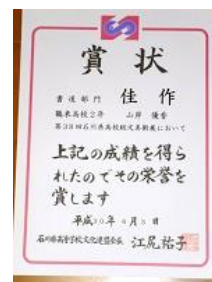 賞状
書道部門 佳作
鶴来高校2年 山岸 優香
第38回石川県高校総文美術展において
上記の成績を得ら
れたのでその栄誉を
賞します
平成30年 月 日
石川県高等学校文化連盟会長 江尻祐子